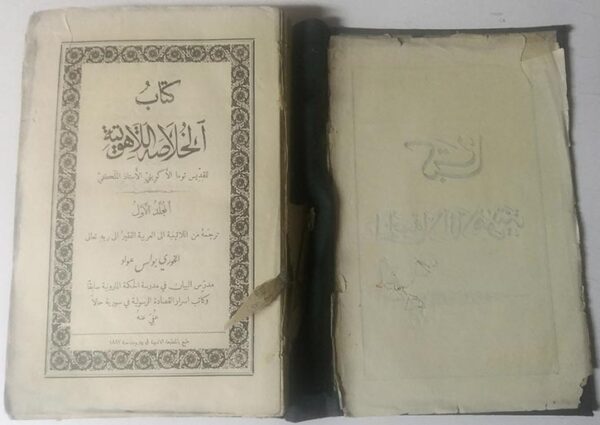 كتاب
الخلاصة اللاهوتية
للقديس توما الاكويني الاستاذ الملكي
المجلد الاول
ترجمهُ من اللاتينية الى العربية الفقير الى ربهِ تعالى
الخوري بولس عواد
مدرّس البيان في مدرسة الحكمة المارونية سابقًا
وكاتب اسرار القصادة الرسولية في سورية حالاً
عُفي عنهُ
طبع بالمطبعة الادبية في بيروت سنة ١٨٨٧